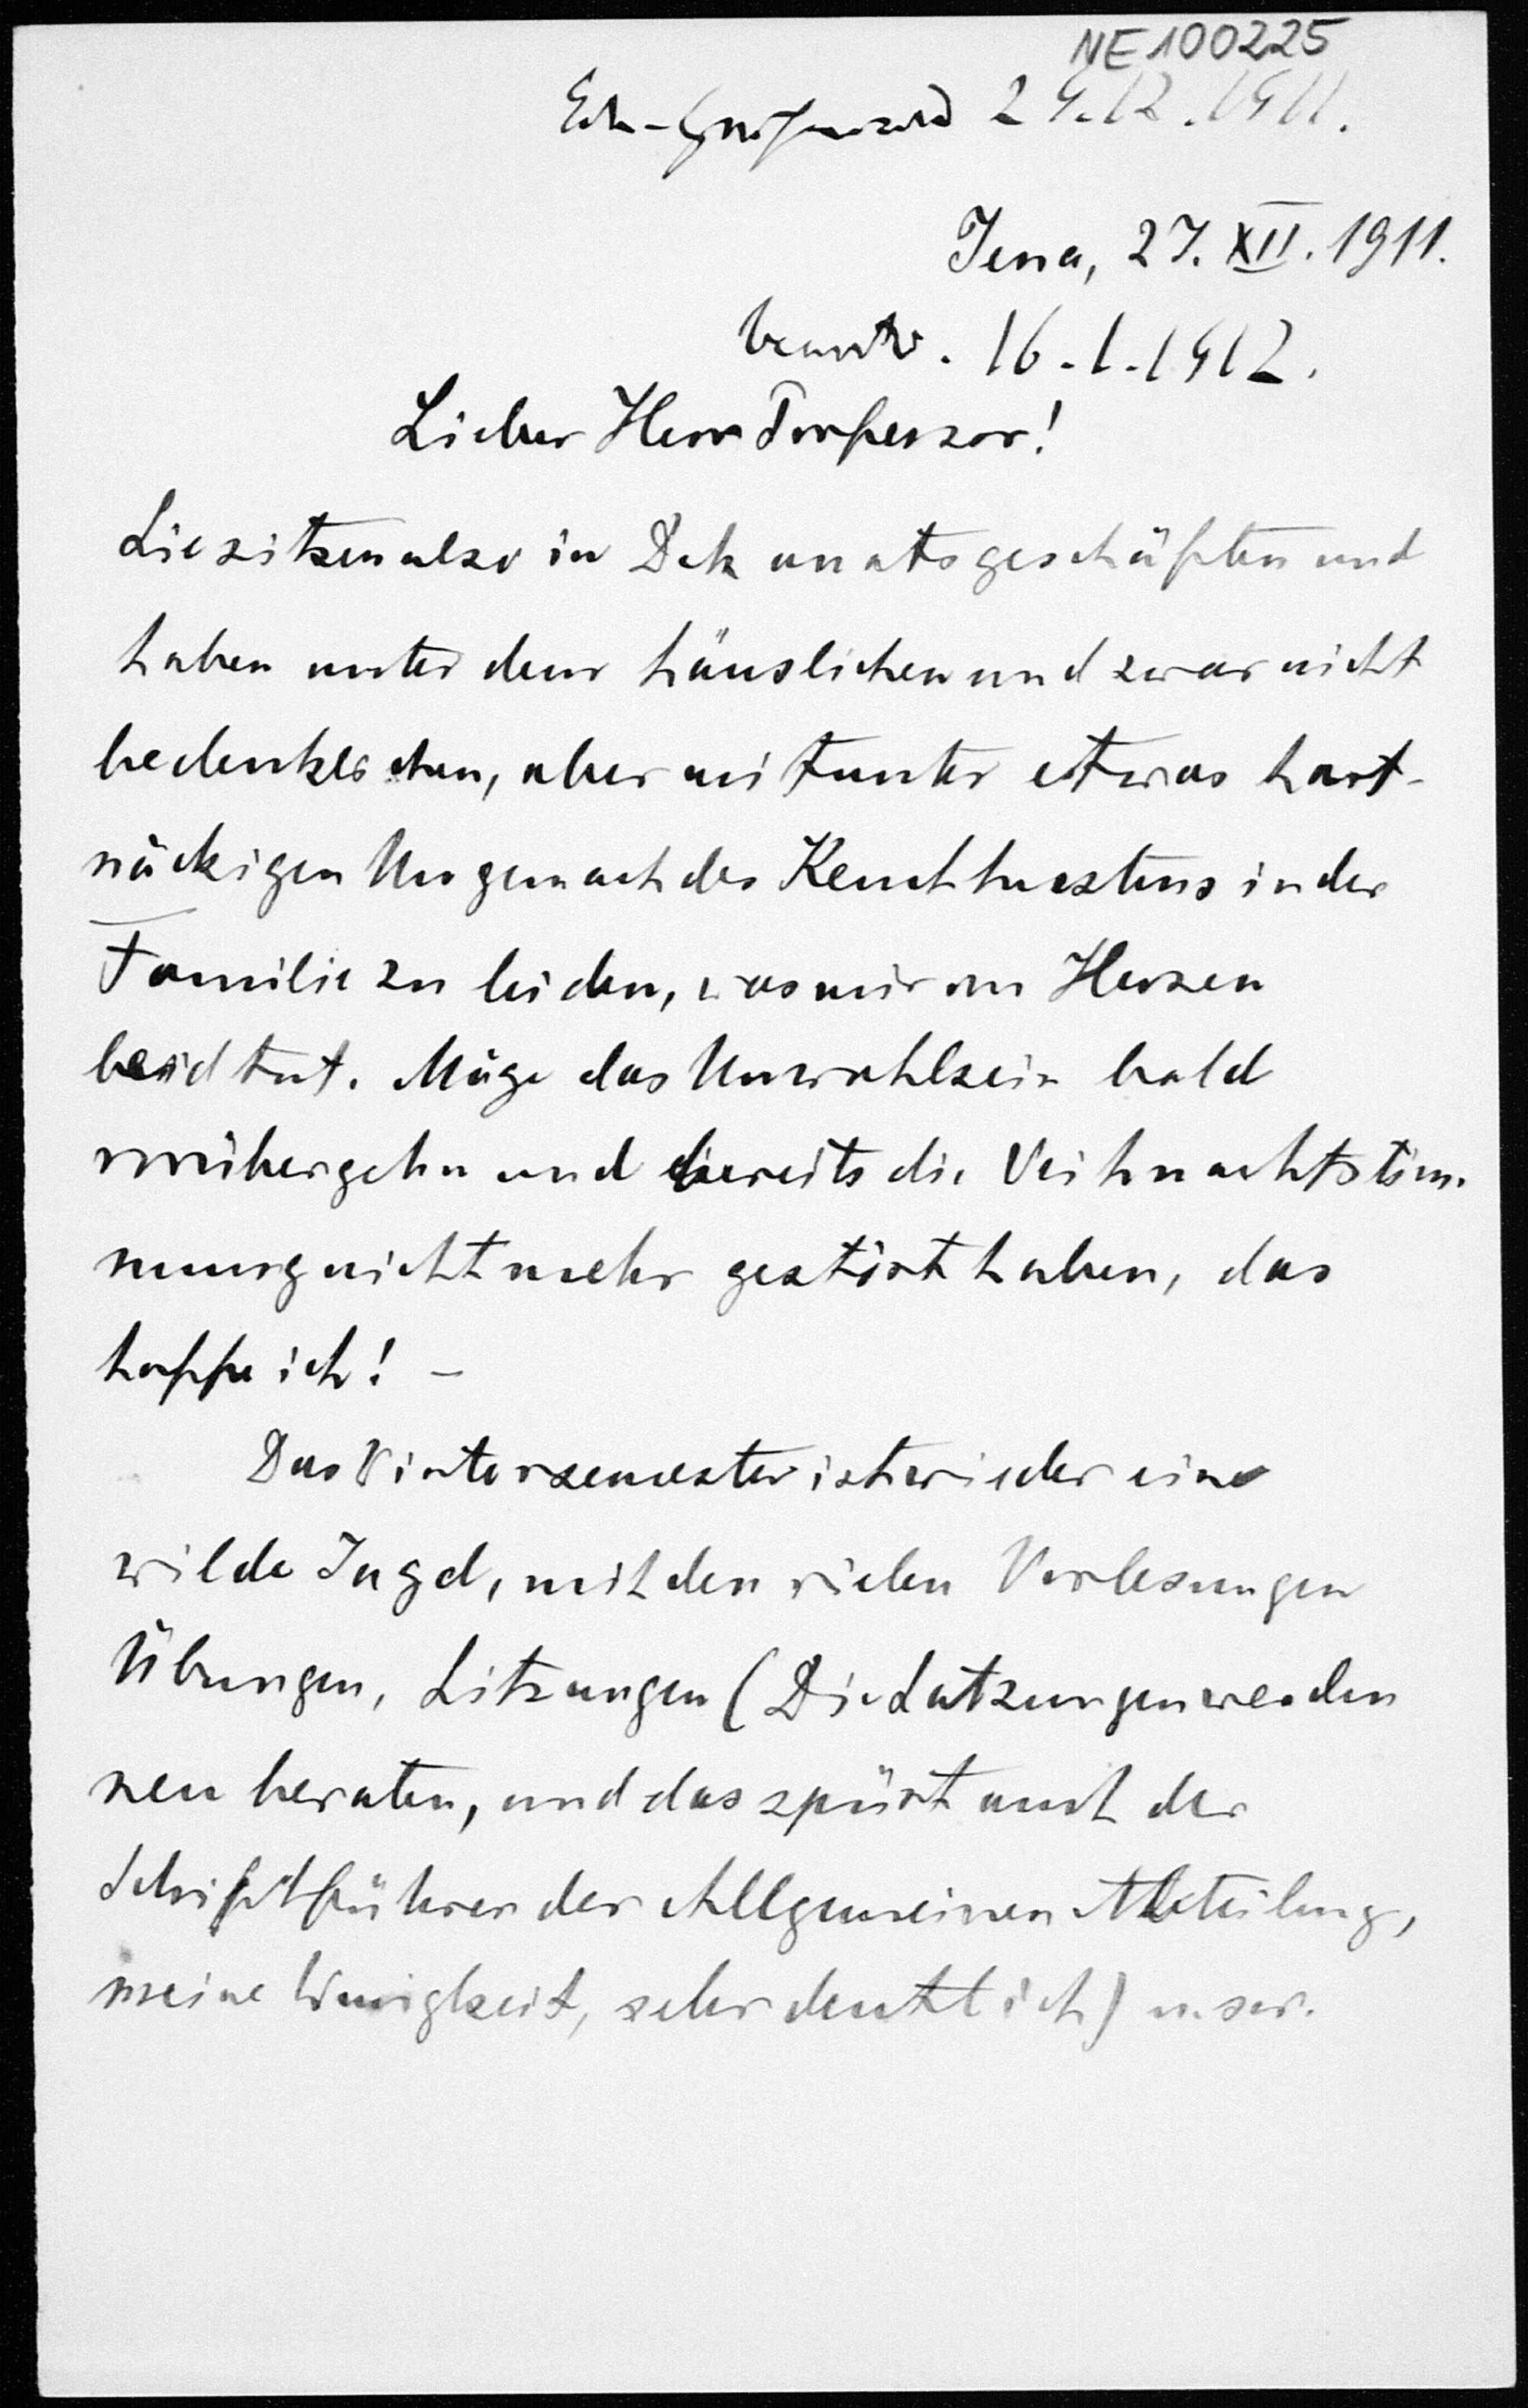 NE100225
29.12.1911.
Jena, 27. XII. 1911.
beantw. 16.1.1912.
Lieber Herr Professor!
Sie sitzen also in Dekanatsgeschäften und
haben unter dem häuslichen und zwar nicht
bedenklichen, aber mitunter etwas hart-
näckigen Ungemach des Keuchhustens in der
Familie zu leiden, was mir von Herzen
leid tut. Möge das Unwohlsein bald
vorübergehn und bereits die Weihnachtstim-
mung nicht mehr gestört haben, das
hoffe ich! –
Das Wintersemester ist wieder eine
wilde Jagd, mit den vielen Vorlesungen
Übungen, Sitzungen (Die Satzungen werden
neu beraten, und das spürt auch der
Schriftführer der Allgemeinen Abteilung,
meine Wenigkeit, sehr deutlich) u.s.w.